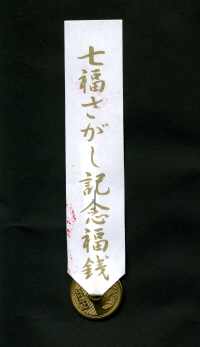 七福さがし記念福銭